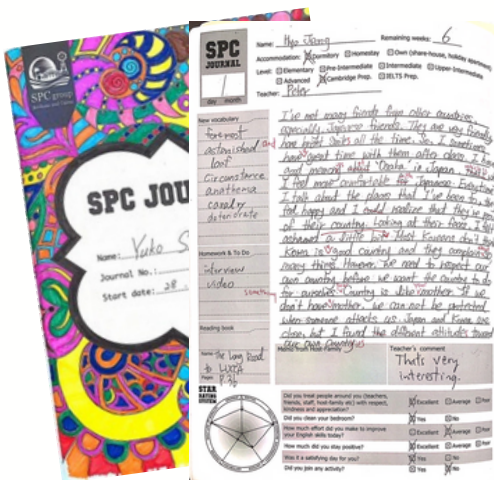 SPC group
SPC JOU
Name: Yuko S
Journal No.:
Start date: 28
SPC
JOURNAL
day month
Name: Hyo Jang Remaining weeks: 6
Accommodation: Dormitory Homestay Own (share-house, holiday apartment)
Level: Elementary Pre-Intermediate Intermediate Upper-Intermediate
Advanced Cambridge Prep. IELTS Prep.
Teacher: Peter
New vocabulary
foremost
astonished
loaf
circumstance
anathema
cavalry
deteriorate
Homework & To Do
interview
video
Reading book
Name: The Long Road
to Lucca
Pages: P.36
I've met many friends from other countries
especially Japanese friends. They are very friendly
have bright smiles all the time. So, I sometimes
have great time with them after class. I have
and about "Osaka" in Japan
I feel more comfortable Japanese. Everytime
I talk about the places that I've been to, they
feel happy and I could realize that they're proud
of their country. Looking at their faces, I felt
ashamed a little bit. Most Koreans don't
Korea is good country and they complain
many things. However, we need to respect our
own country before we want the country to do
something for ourselves. Country is like mother. If we
don't have mother, we can not be protected
when someone attacks us. Japan and Korea are
close but I found the different attitudes toward
our own country.
Memo from Host-Family
Teacher's comment
That's very
interesting.
STAR
RATING
SYSTEM
Did you treat people around you (teachers,
friends, staff, host-family etc) with respect,
kindness and appreciation? Excellent Average Poor
Did you clean your bedroom? Yes No
How much effort did you make to improve
your English skills today? Excellent Average Poor
How much did you stay positive? Excellent Average Poor
Was it a satisfying day for you? Yes No
Did you join any activity? Yes No